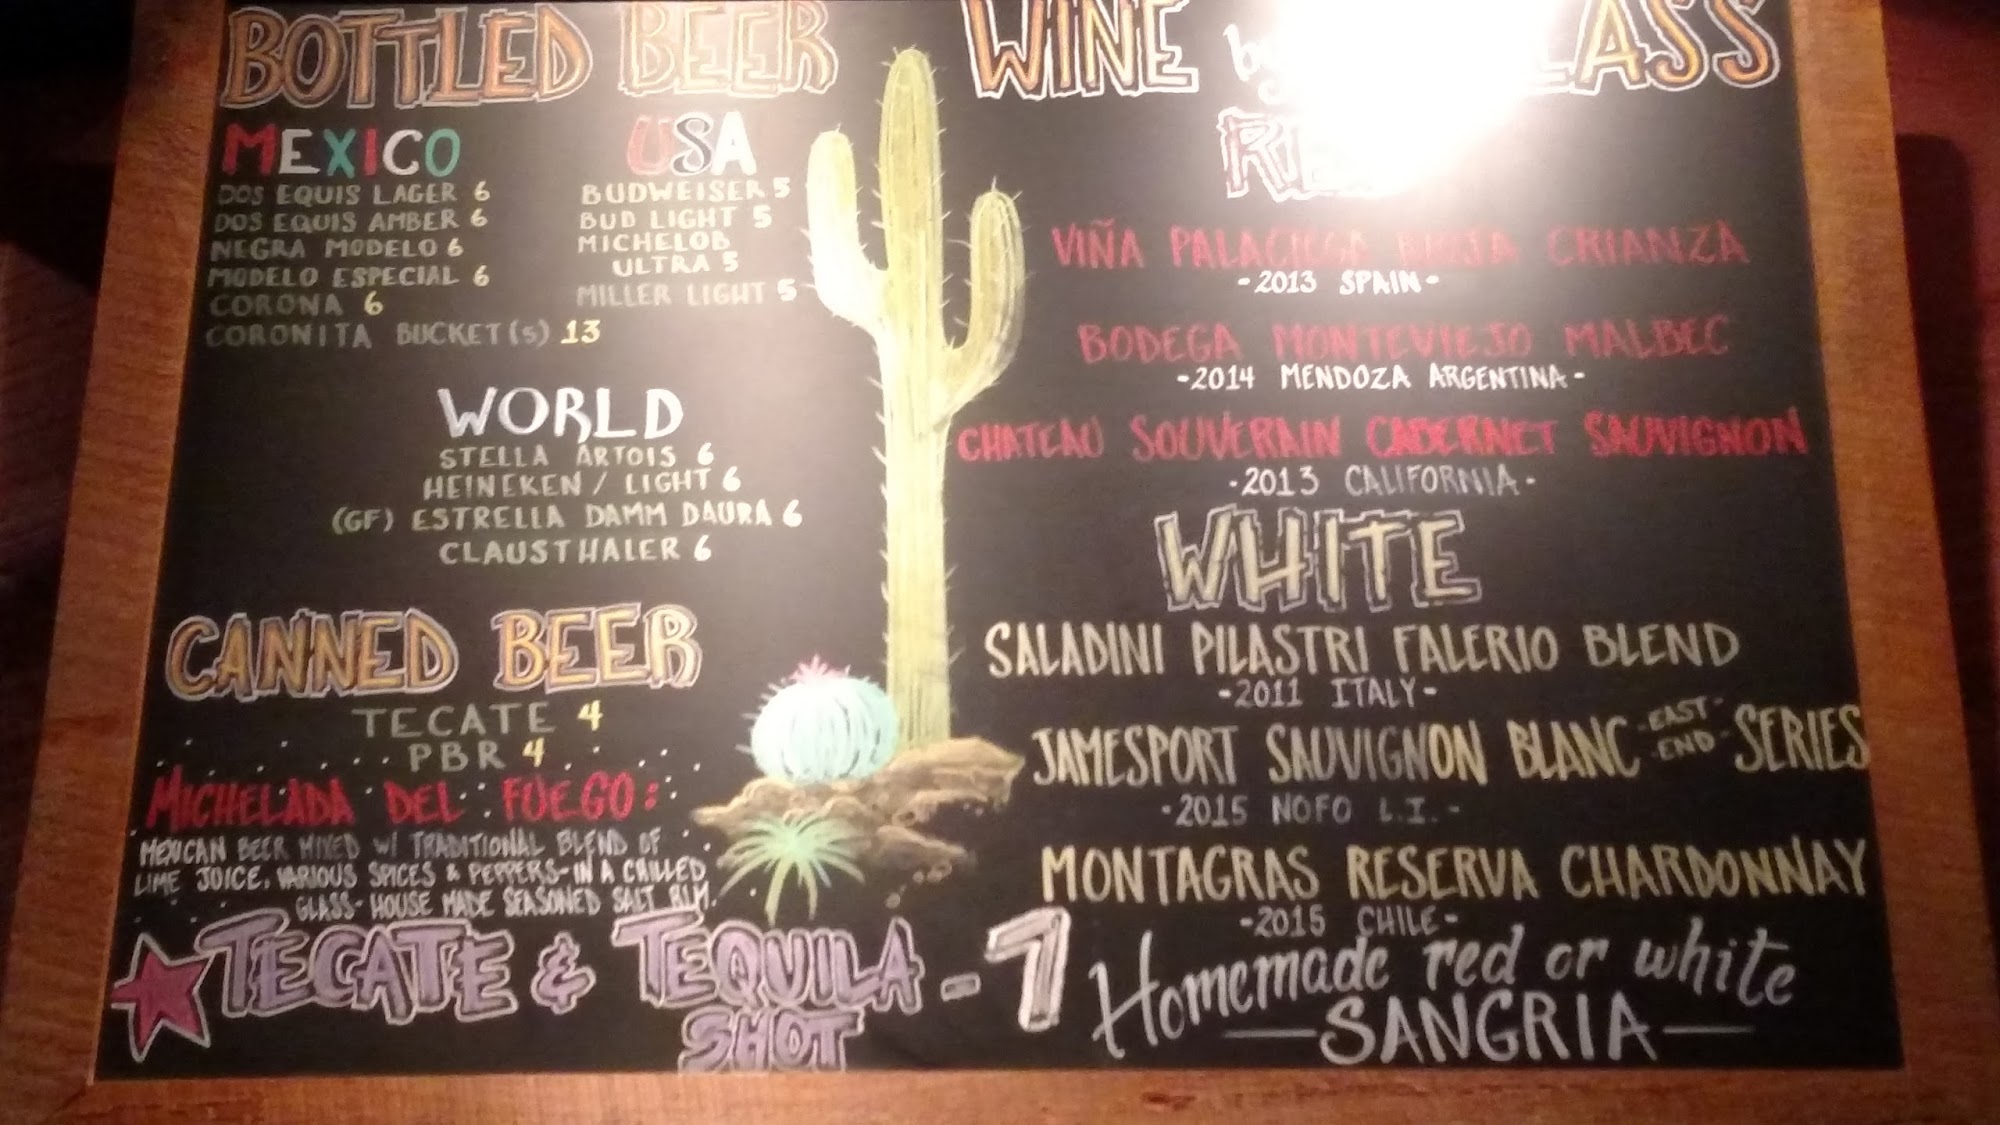 BOTTLED BEER
MEXICO
DOS EQUIS LAGER 6
DOS EQUIS AMBER 6
NEGRA MODELO 6
MODELO ESPECIAL 6
CORONA 6
CORONITA BUCKET(S) 13
USA
BUDWEISER 5
BUD LIGHT 5
MICHELOB
ULTRA 5
MILLER LIGHT 5
WORLD
STELLA ARTOIS 6
HEINEKEN / LIGHT 6
(GF) ESTRELLA DAMM DAURA 6
CLAUSTHALER 6
CANNED BEER
TECATE 4
PBR 4
MICHELADA DEL FUEGO:
MEXICAN BEER MIXED W/ TRADITIONAL BLEND OF
LIME JUICE, VARIOUS SPICES & PEPPERS-IN A CHILLED
GLASS-HOUSE MADE SEASONED SALT RIM.
TECATE & TEQUILA - 7
SHOT
WINE by
VIÑA PALACIEGA RIOJA CRIANZA
-2013 SPAIN-
BODEGA MONTEVIEJO MALBEC
-2014 MENDOZA ARGENTINA-
CHATEAU SOUVERAIN CABERNET SAUVIGNON
-2013 CALIFORNIA-
WHITE
SALADINI PILASTRI FALERIO BLEND
-2011 ITALY-
JAMESPORT SAUVIGNON BLANC -EAST END- SERIES
-2015 NOFO L.I.-
MONTAGRAS RESERVA CHARDONNAY
-2015 CHILE-
Homemade red or white
SANGRIA